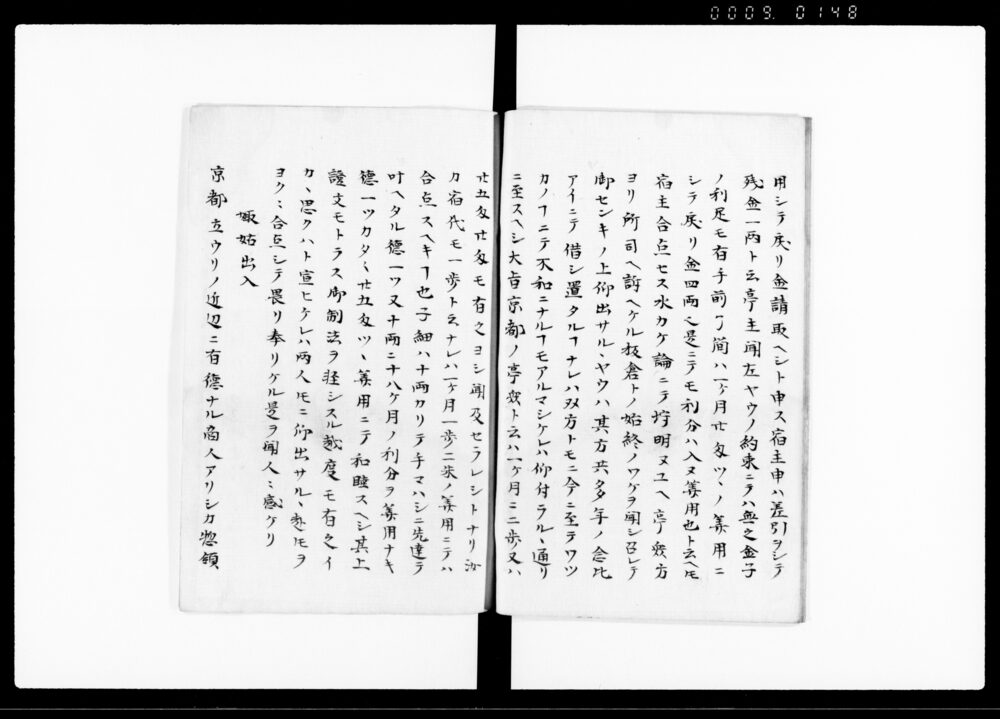 0009. 0148
用シテ戻リ金請取ヘシト申ス宿主申ハ差引ヲシテ
残金一両ト云亭主聞左ヤウノ約束ニテハ無之金子
ノ利足モ有手前了簡ハ一ケ月廿匁ツヽノ筭用ニ
シテ戻リ金四両也是ニテモ利分ハ入ヌ筭用也ト云ヘ𪜈
宿主合点セス水カケ論ニテ埒明ヌユヘ亭衆方
ヨリ所司ヘ訴ヘケル板倉トノ始終ノワケヲ聞シ召レテ
御センキノ上仰出サルヽヤウハ其方共多年ノ念比
アイニテ借シ置タルヿナレハ双方トモニ今ニ至テワツ
カノヿニテ不和ニナルヿモアルマシケレハ仰付ラルヽ通リ
ニ至スヘシ大旨京都ノ亭衆ト云ハ一ケ月ニ二歩又ハ
廿五匁廿匁モ有之ヨシ聞及セラレシトナリ汝
カ宿代モ一歩ト云ナレハ一ケ月一歩ニ朱ノ筭用ニテハ
合点スヘキヿ也子細ハ十両カリテ手マハシニ先達テ
叶ヘタル徳一ツ又十両ニ十八ケ月ノ利分ヲ筭用ナキ
徳一ツカタ〱廿五匁ツヽ筭用ニテ和睦スヘシ其上
證文モトラス御制法ヲ軽シスル越度モ有之イ
カヽ思クハト宣ヒケレハ両人𪜈ニ仰出サルヽ趣𪜈ヲ
ヨク〱合点シテ畏リ奉リケル是ヲ聞人〱感ケリ
娵姑出入
京都立ウリノ近辺ニ有徳ナル商人アリシカ惣領